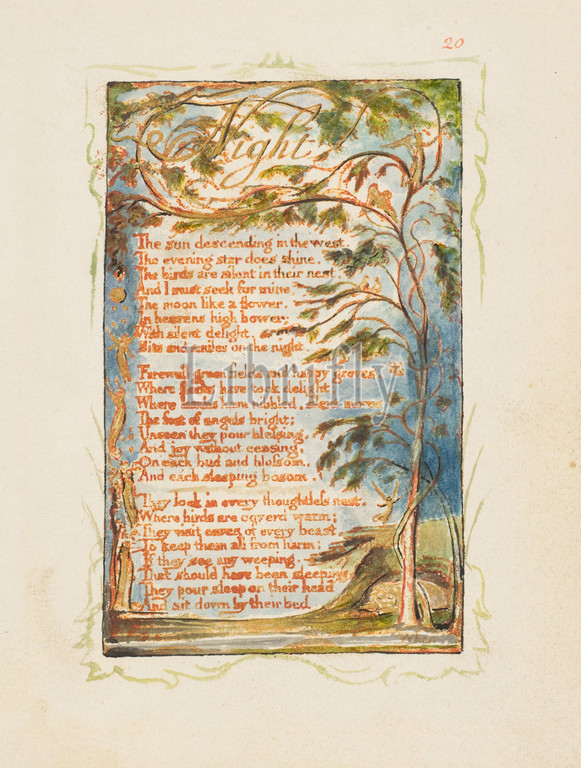 20
Night
The sun descending in the west.
The evening star does shine.
The birds are silent in their nest.
And I must seek for mine
The moon like a flower.
In heavens high bower;
With silent delight,
Sits and smiles on the night.
Farewell green fields and happy groves,
Where flocks have took delight
Where lambs have nibbled, silent moves
The feet of angels bright;
Unseen they pour blessing,
And joy without ceasing,
On each bud and blossom,
And each sleeping bosom.
They look in every thoughtless nest,
Where birds are coverd warm;
They visit caves of every beast,
To keep them all from harm;
If they see any weeping,
That should have been sleeping
They pour sleep on their head
And sit down by their bed.
Librifly